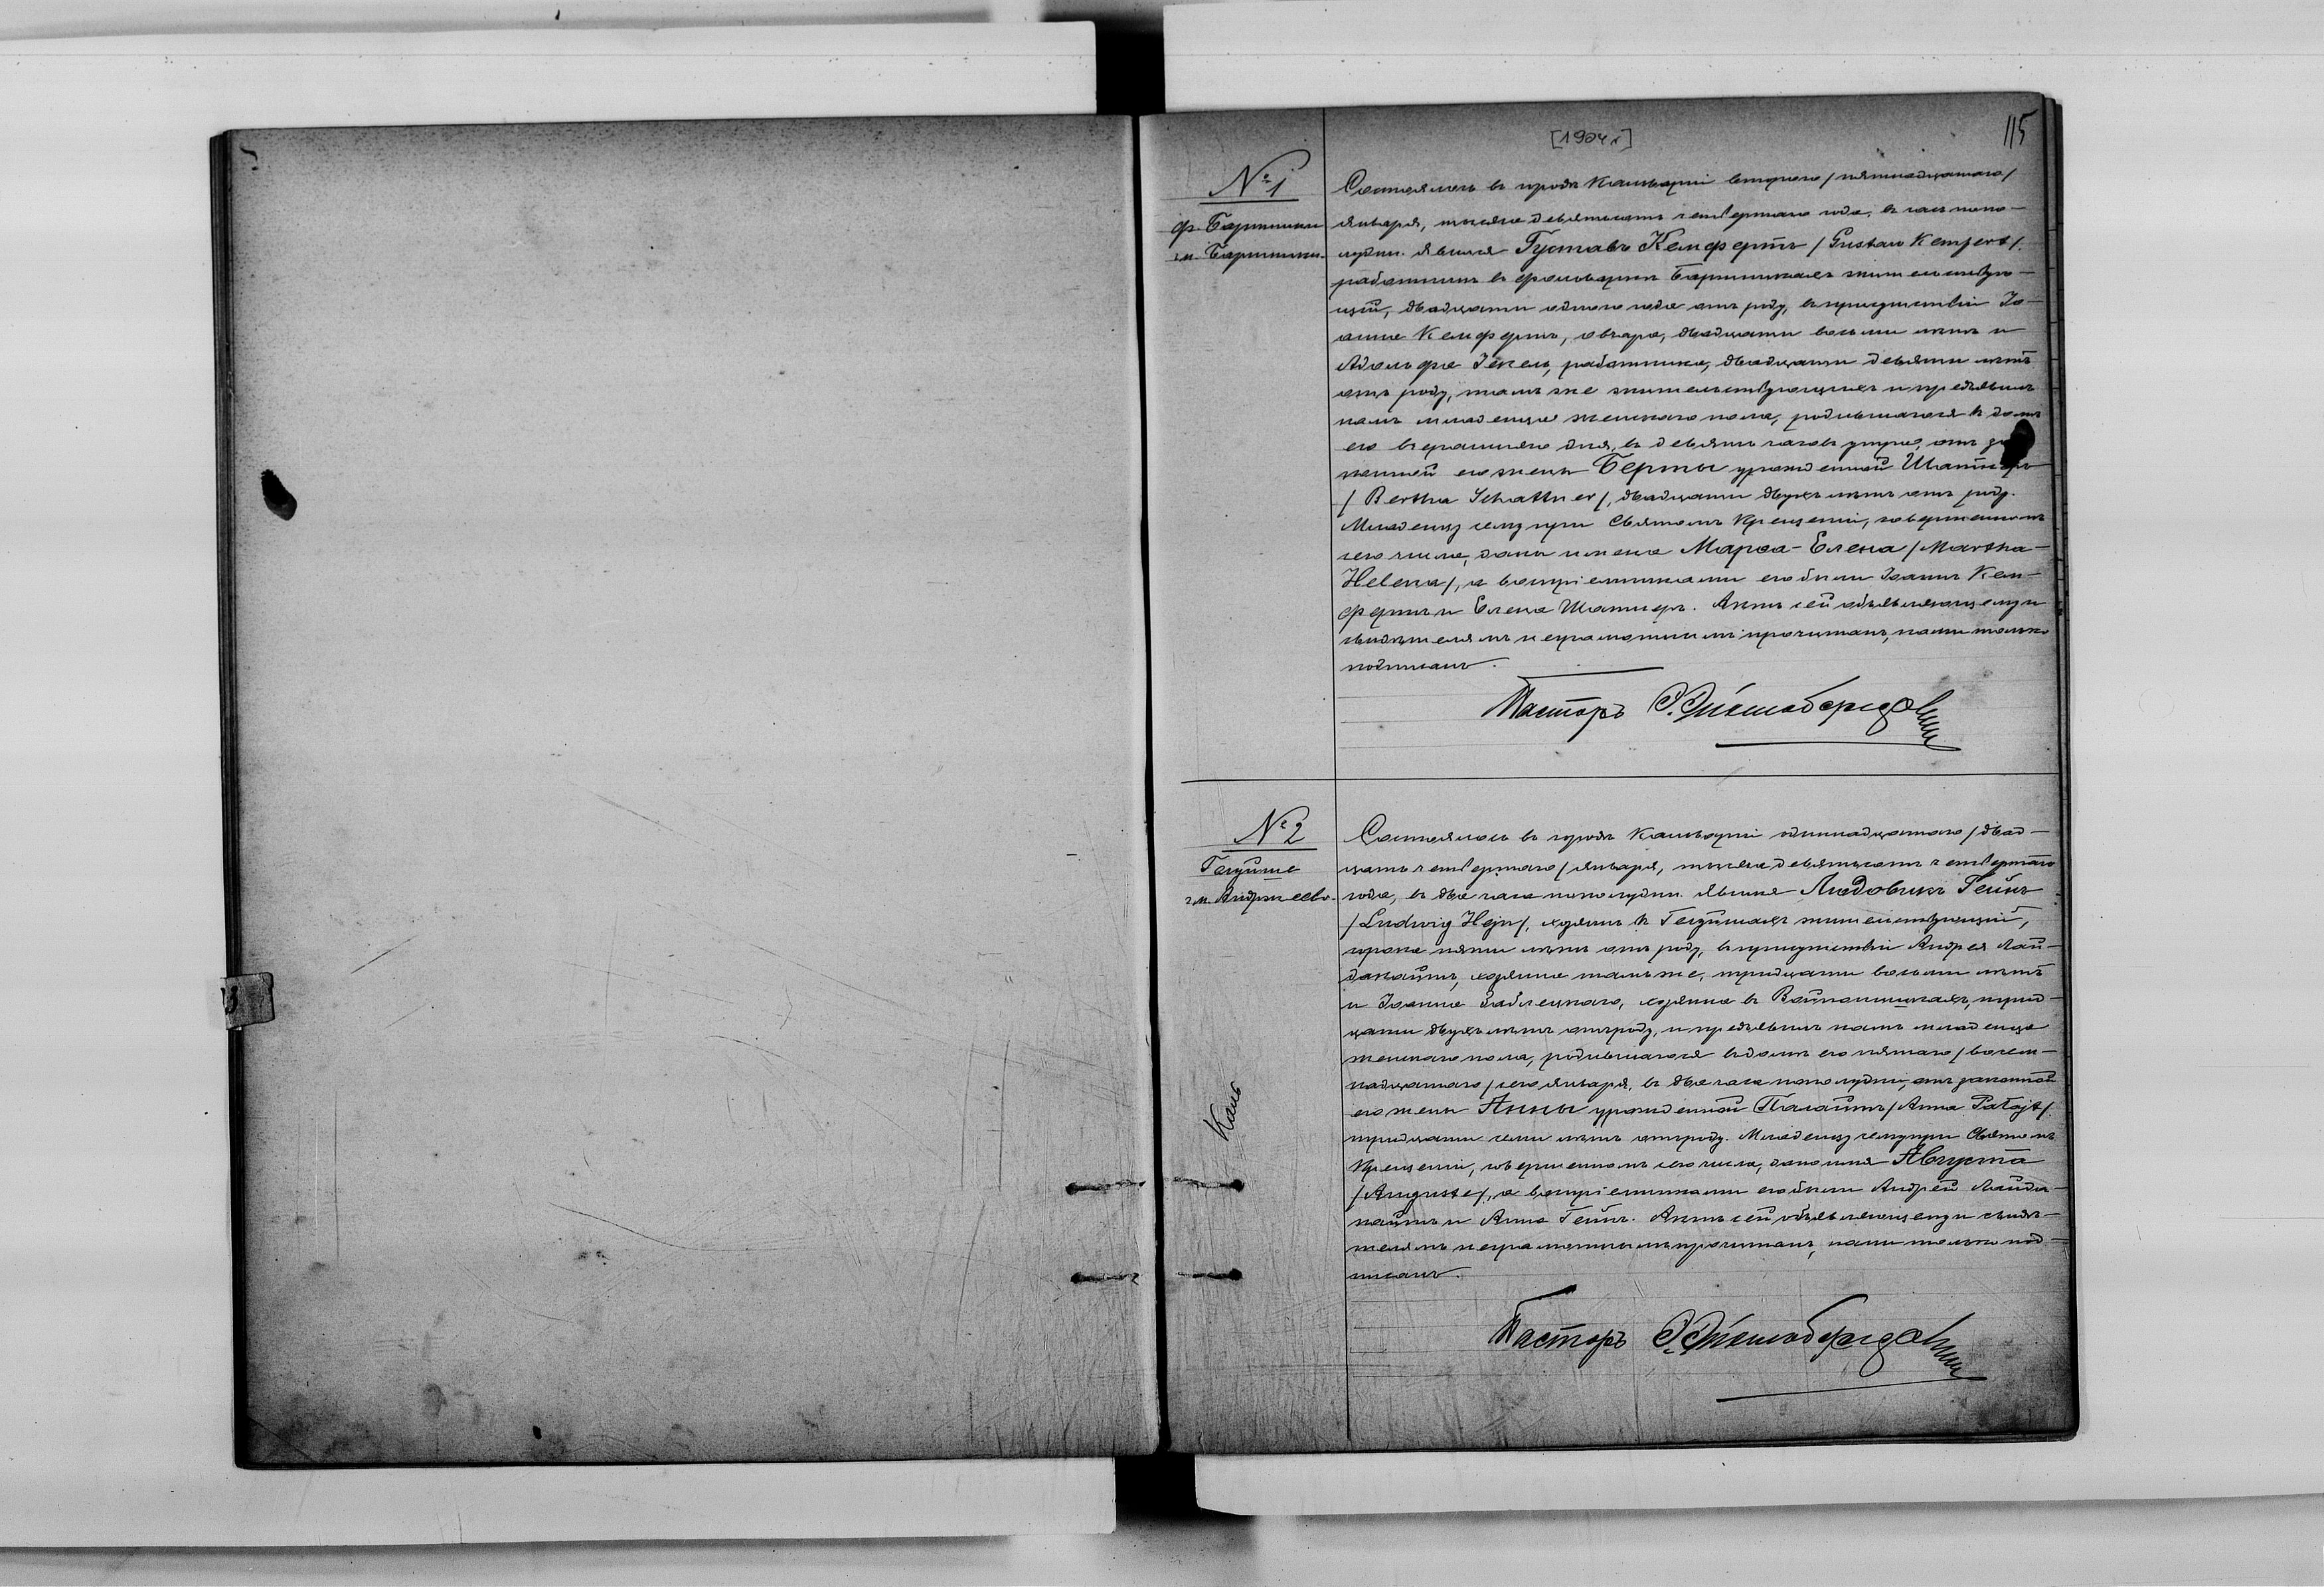 [1904 г.]
115
№ 1
ф. Бартники
гм. Бартники.
Состоялось въ городѣ Кальваріи второго /пятнадцатаго/
января, тысяча девятьсотъ четвертаго года, въ часъ попо-
лудни. Явился Густавъ Кемфертъ /Gustaw Kempert/,
работникъ въ фольваркѣ Бартникахъ жительствую-
щій, двадцати одного года отъ роду, въ присутствіи Іо-
анна Кемфертъ, овчара, двадцати восьми лѣтъ и
Адольфа Іекель, работника, двадцати девяти лѣтъ
отъ роду, тамъ же жительствующихъ и предъявилъ
намъ младенца женскаго пола, родившагося въ домѣ
его вчерашняго дня, въ девять часовъ утра, отъ за
конной его жены Берты урожденной Шатнеръ
/Bertha Schattner/, двадцати двухъ лѣтъ отъ роду.
Младенцу сему при Святомъ Крещеніи, совершенномъ
сего числа, даны имена Марѳа-Елена /Martha-
Helena/, а воспріемниками его были Іоаннъ Кем-
фертъ и Елена Шатнеръ. Актъ сей объявляющему и
свидѣтелямъ неграмотнымъ прочитанъ, нами только
подписанъ.
Пасторъ
№ 2
гм. Андржеево.
Состоялось въ городѣ Кальваріи одиннадцатаго /двад-
цать четвертаго/ января, тысяча девятьсотъ четвертаго
года, въ два часа пополудни. Явился Людовикъ Гейнъ
/Ludwig Hejn/, хозяинъ въ жительствующій,
сорока пяти лѣтъ отъ роду, въ присутствіи Андрея Лай-
данайтъ, хозяина тамъ же, тридцати восьми лѣтъ
и Іоанна Заблецкаго, хозяина въ трид-
цати двухъ лѣтъ отъ роду, и предъявилъ намъ младенца
женскаго пола, родившагося въ домѣ его пятаго /восем-
надцатаго/ сего января, въ два часа пополудни, отъ законной
его жены Анны урожденной Палайтъ /Anna Pałajt/
тридцати семи лѣтъ отъ роду. Младенцу сему при Святомъ
Крещеніи, совершенномъ сего числа, дано имя Августа
/Auguste/, а воспріемниками его были Андрей Лайда-
найтъ и Анна Гейнъ. Актъ сей объявляющему и свидѣ-
телямъ неграмотнымъ прочитанъ, нами только под-
писанъ.
Пасторъ
Каль